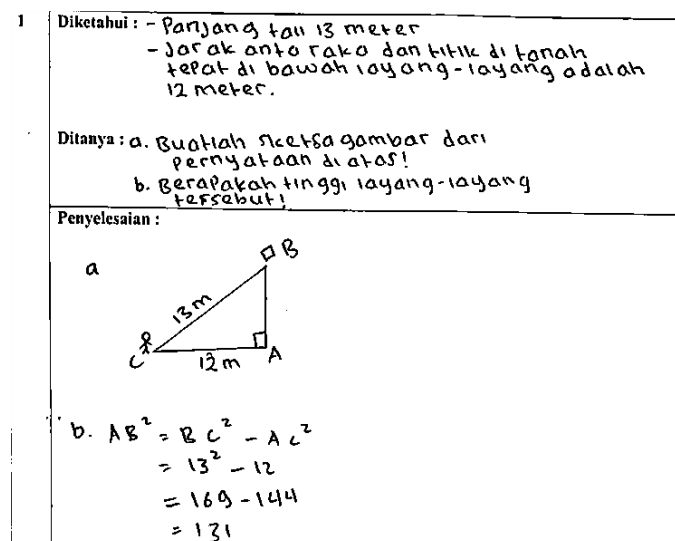 1 Diketahui : - Panjang tali 13 meter
- Jarak anta raka dan titik di tanah
tepat di bawah layang-layang adalah
12 meter.
Ditanya : a. Buatlah sketsa gambar dari
pernyataan di atas!
b. Berapakah tinggi layang-layang
tersebut!
Penyelesaian :
a
B
13 m
C
12 m
A
b. AB² = BC² - AC²
= 13² - 12
= 169 - 144
= 131